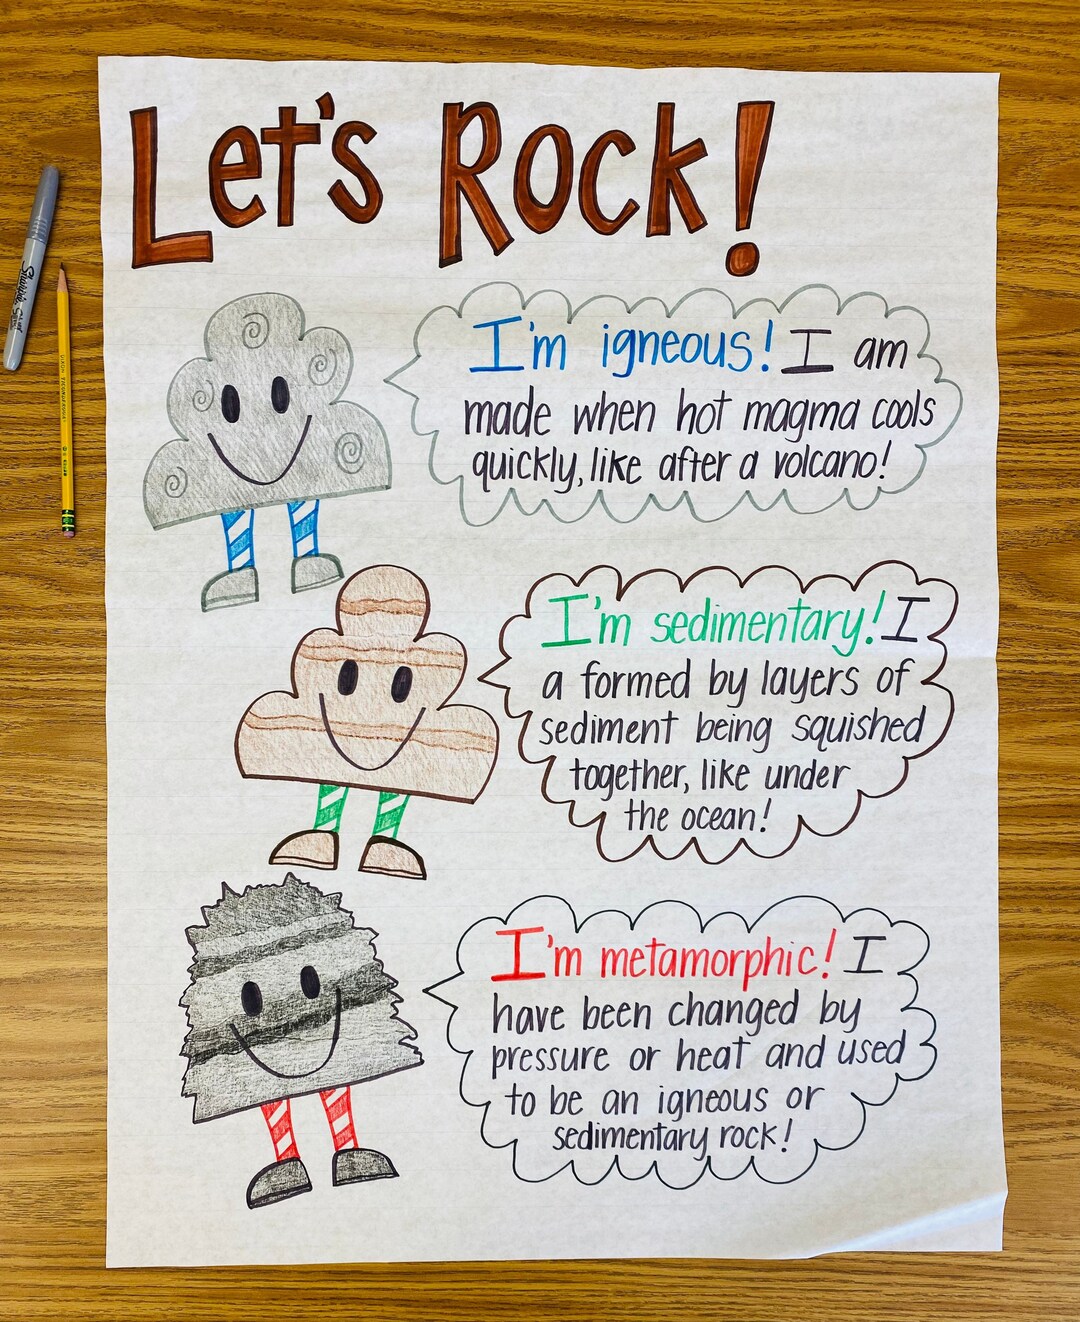 Let's Rock!
I'm igneous! I am
made when hot magma cools
quickly, like after a volcano!
I'm sedimentary! I
a formed by layers of
sediment being squished
together, like under
the ocean!
I'm metamorphic! I
have been changed by
pressure or heat and used
to be an igneous or
sedimentary rock!
Sharpie